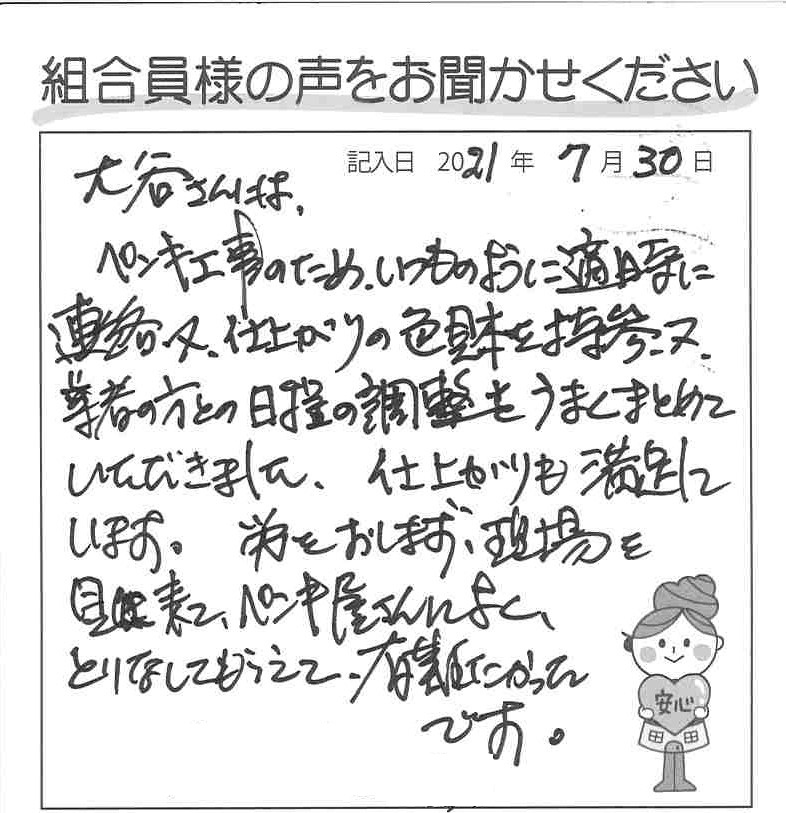 組合員様の声をお聞かせください
記入日 2021年 7月30日
大谷さんは、
ペンキ工事のため、いつものように適時に
連絡、又、仕上がりの色見本を持参、又、
業者の方との日程の調整をうまくまとめて
いただきました、仕上がりも満足して
います。労をおしまず、現場を
見に来て、ペンキ屋さんによく、
とりなしてもらえて、有難たかった
です。
安心